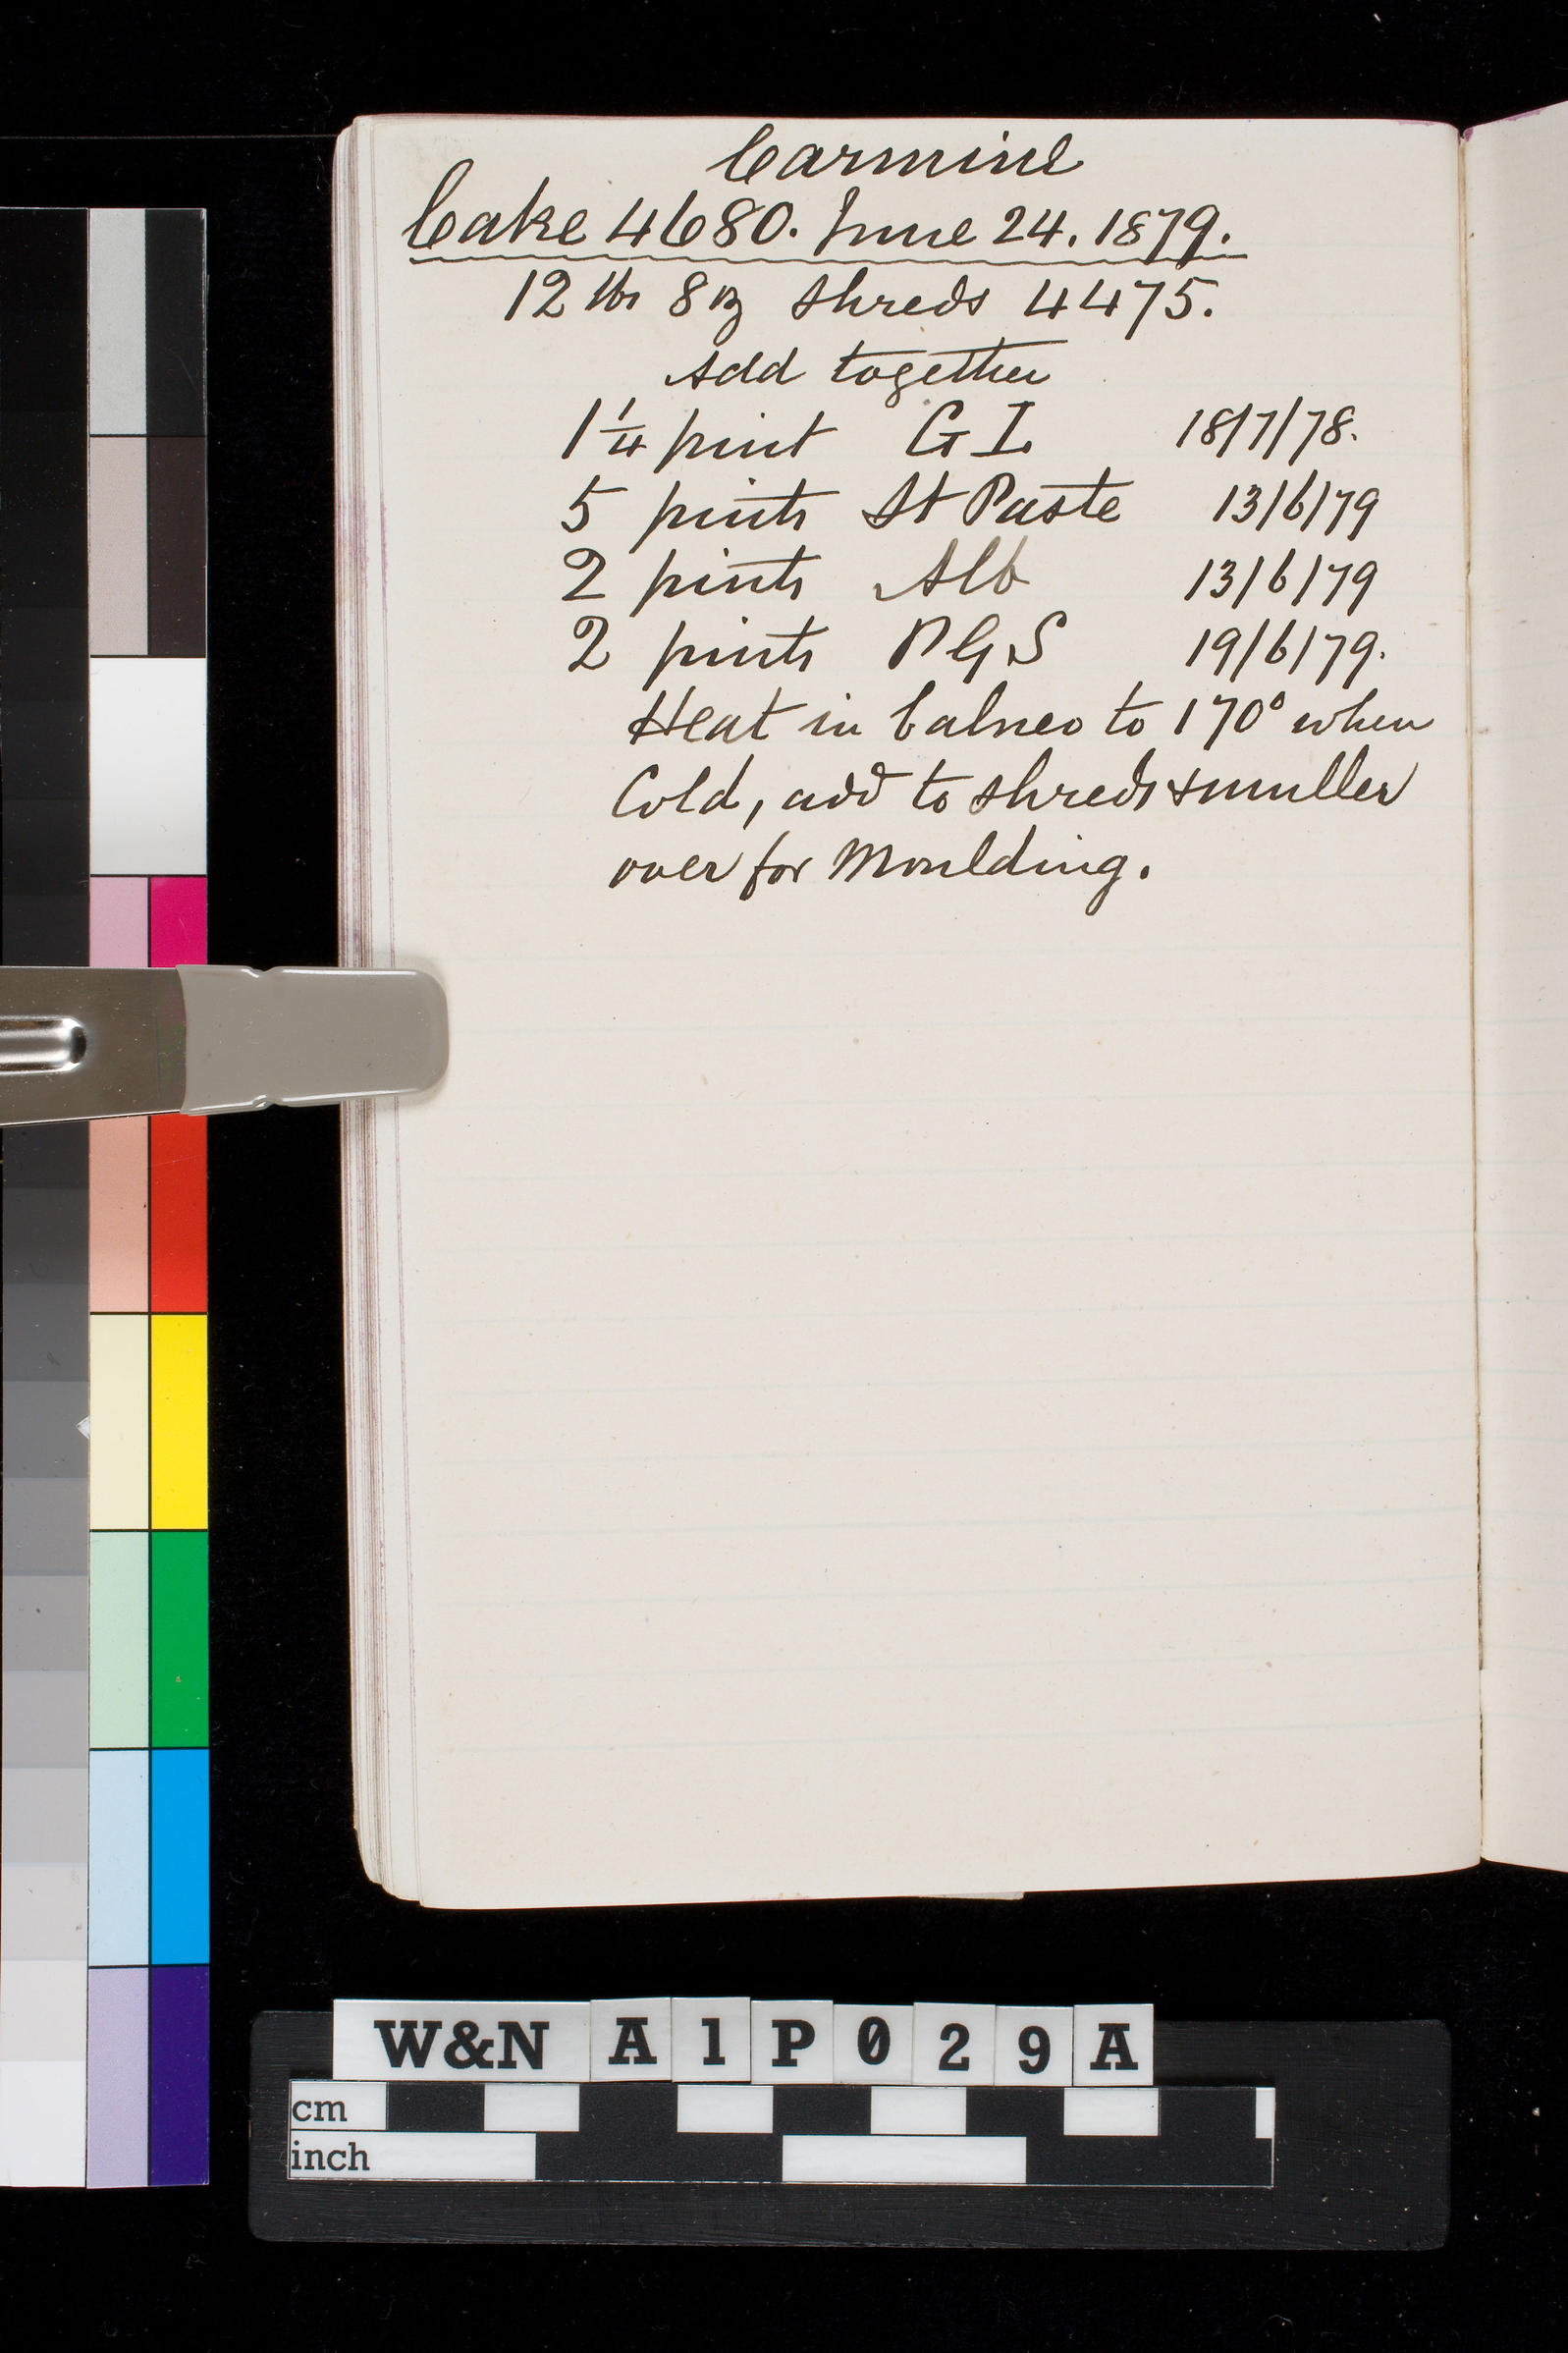 Carmine
Cake 4680. June 24. 1879.
12 lbs 8 oz shreds 4475.
Add together
1 1/4 pint G I 18/7/78.
5 pints St Paste 13/6/79
2 pints Alb 13/6/79
2 pints P G S 19/6/79.
Heat in balneo to 170° when
Cold, add to shreds & muller
over for Moulding.
W&N A1P029A
cm
inch